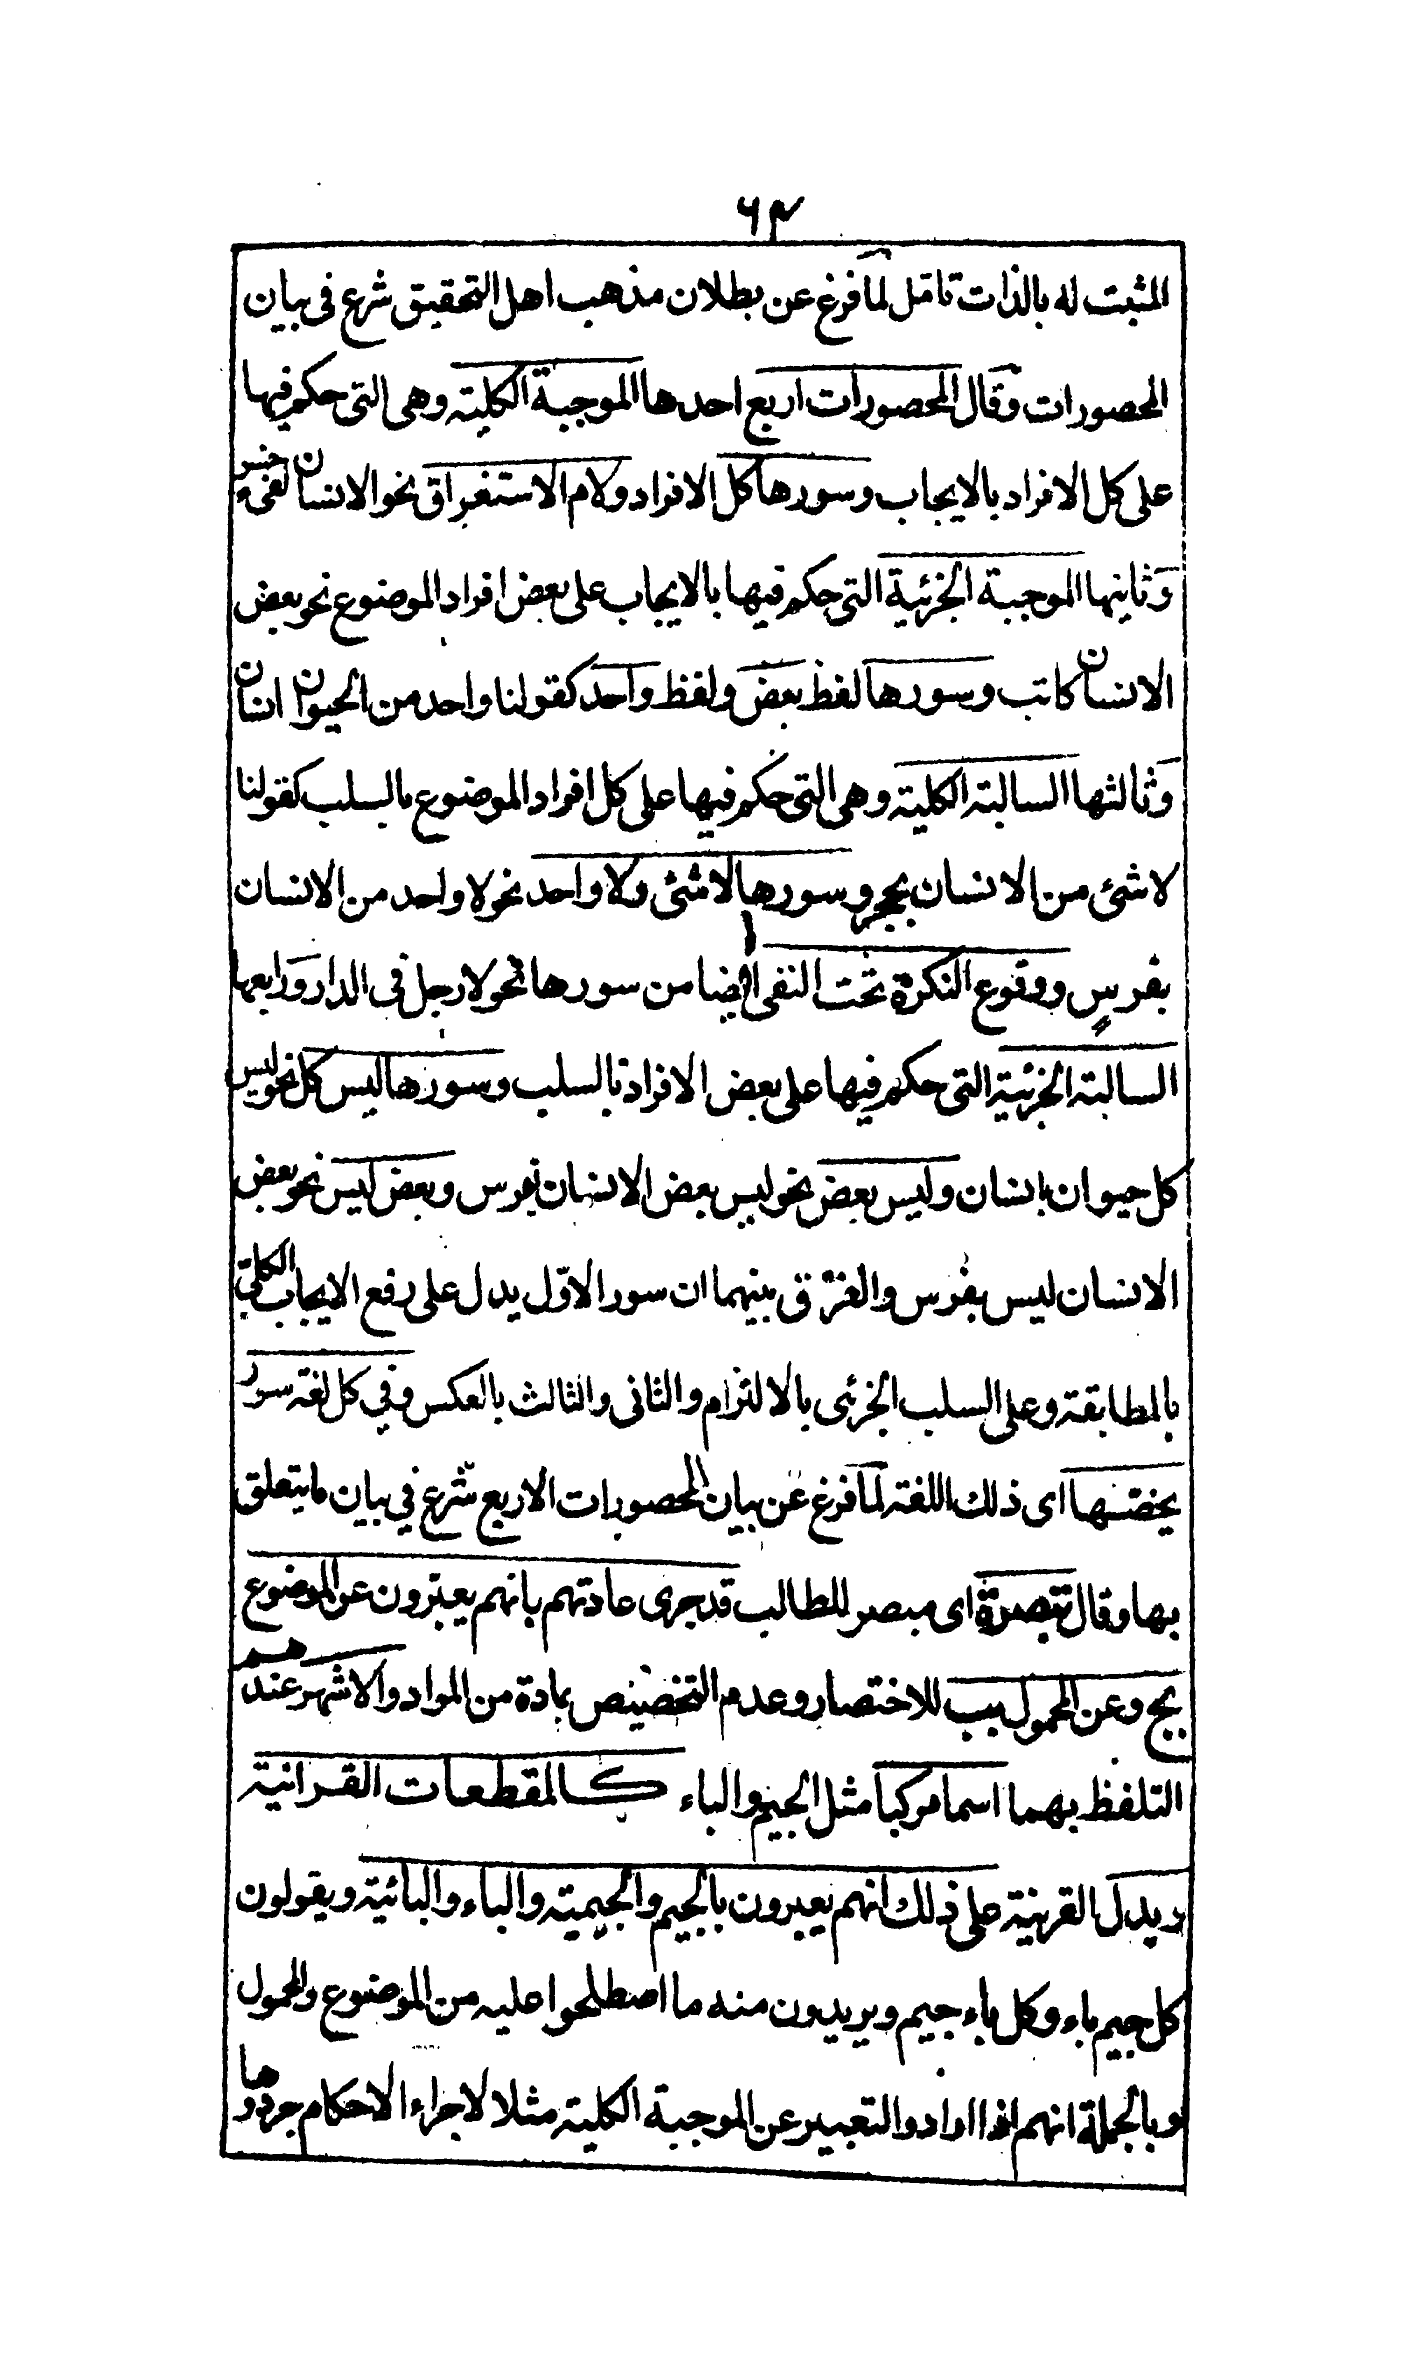 ٦٤
المثبت له بالذات تامل لما فرغ عن بطلان مذهب اهل التحقيق شرع فى بيان
المحصورات وقال المحصورات اربع احدها الموجبة الكلية وهى التى حكم فيها
على كل الافراد بالايجاب وسورها كل الافراد ولام الاستغراق نحو الانسان لفى خسر
وثانيتها الموجبة الجزئية التى حكم فيها بالايجاب على بعض افراد الموضوع نحو بعض
الانسان كاتب وسورها لفظ بعض ولفظ واحد كقولنا واحد من الحيوان انسان
وثالثها السالبة الكلية وهى التى حكم فيها على كل افراد الموضوع بالسلب كقولنا
لا شئ من الانسان بحجر وسورها لا شئ ولا واحد نحو لا واحد من الانسان
بفرس ووقوع النكرة تحت النفى ايضا من سورها نحو لا رجل فى الدار ورابعها
السالبة الجزئية التى حكم فيها على بعض الافراد بالسلب وسورها ليس كل نحو ليس
كل حيوان بانسان وليس بعض نحو ليس بعض الانسان بفرس وبعض ليس نحو بعض
الانسان ليس بفرس والفرق بينهما ان سور الاول يدل على رفع الايجاب الكلى
بالمطابقة وعلى السلب الجزئى بالالتزام والثانى والثالث بالعكس وفى كل لغة سور
يخصها اى ذلك اللغة لما فرغ عن بيان المحصورات الاربع شرع فى بيان ما يتعلق
بها وقال تبصرة اى مبصر للطالب قد جرى عادتهم بانهم يعبرون عن الموضوع
بج وعن المحمول بب للاختصار وعدم التخصيص بمادة من المواد والاشهر عندهم
التلفظ بهما اسما مركبا مثل الجيم والباء كالمقطعات القرانية
ويدل القرينة على ذلك انهم يعبرون بالجيم والجيمية والباء والبائية ويقولون
كل جيم باء وكل باء جيم ويريدون منه ما اصطلحوا عليه من الموضوع والمحمول
وبالجملة انهم اذا ارادوا التعبير عن الموجبة الكلية مثلا لاجراء الاحكام جردوها